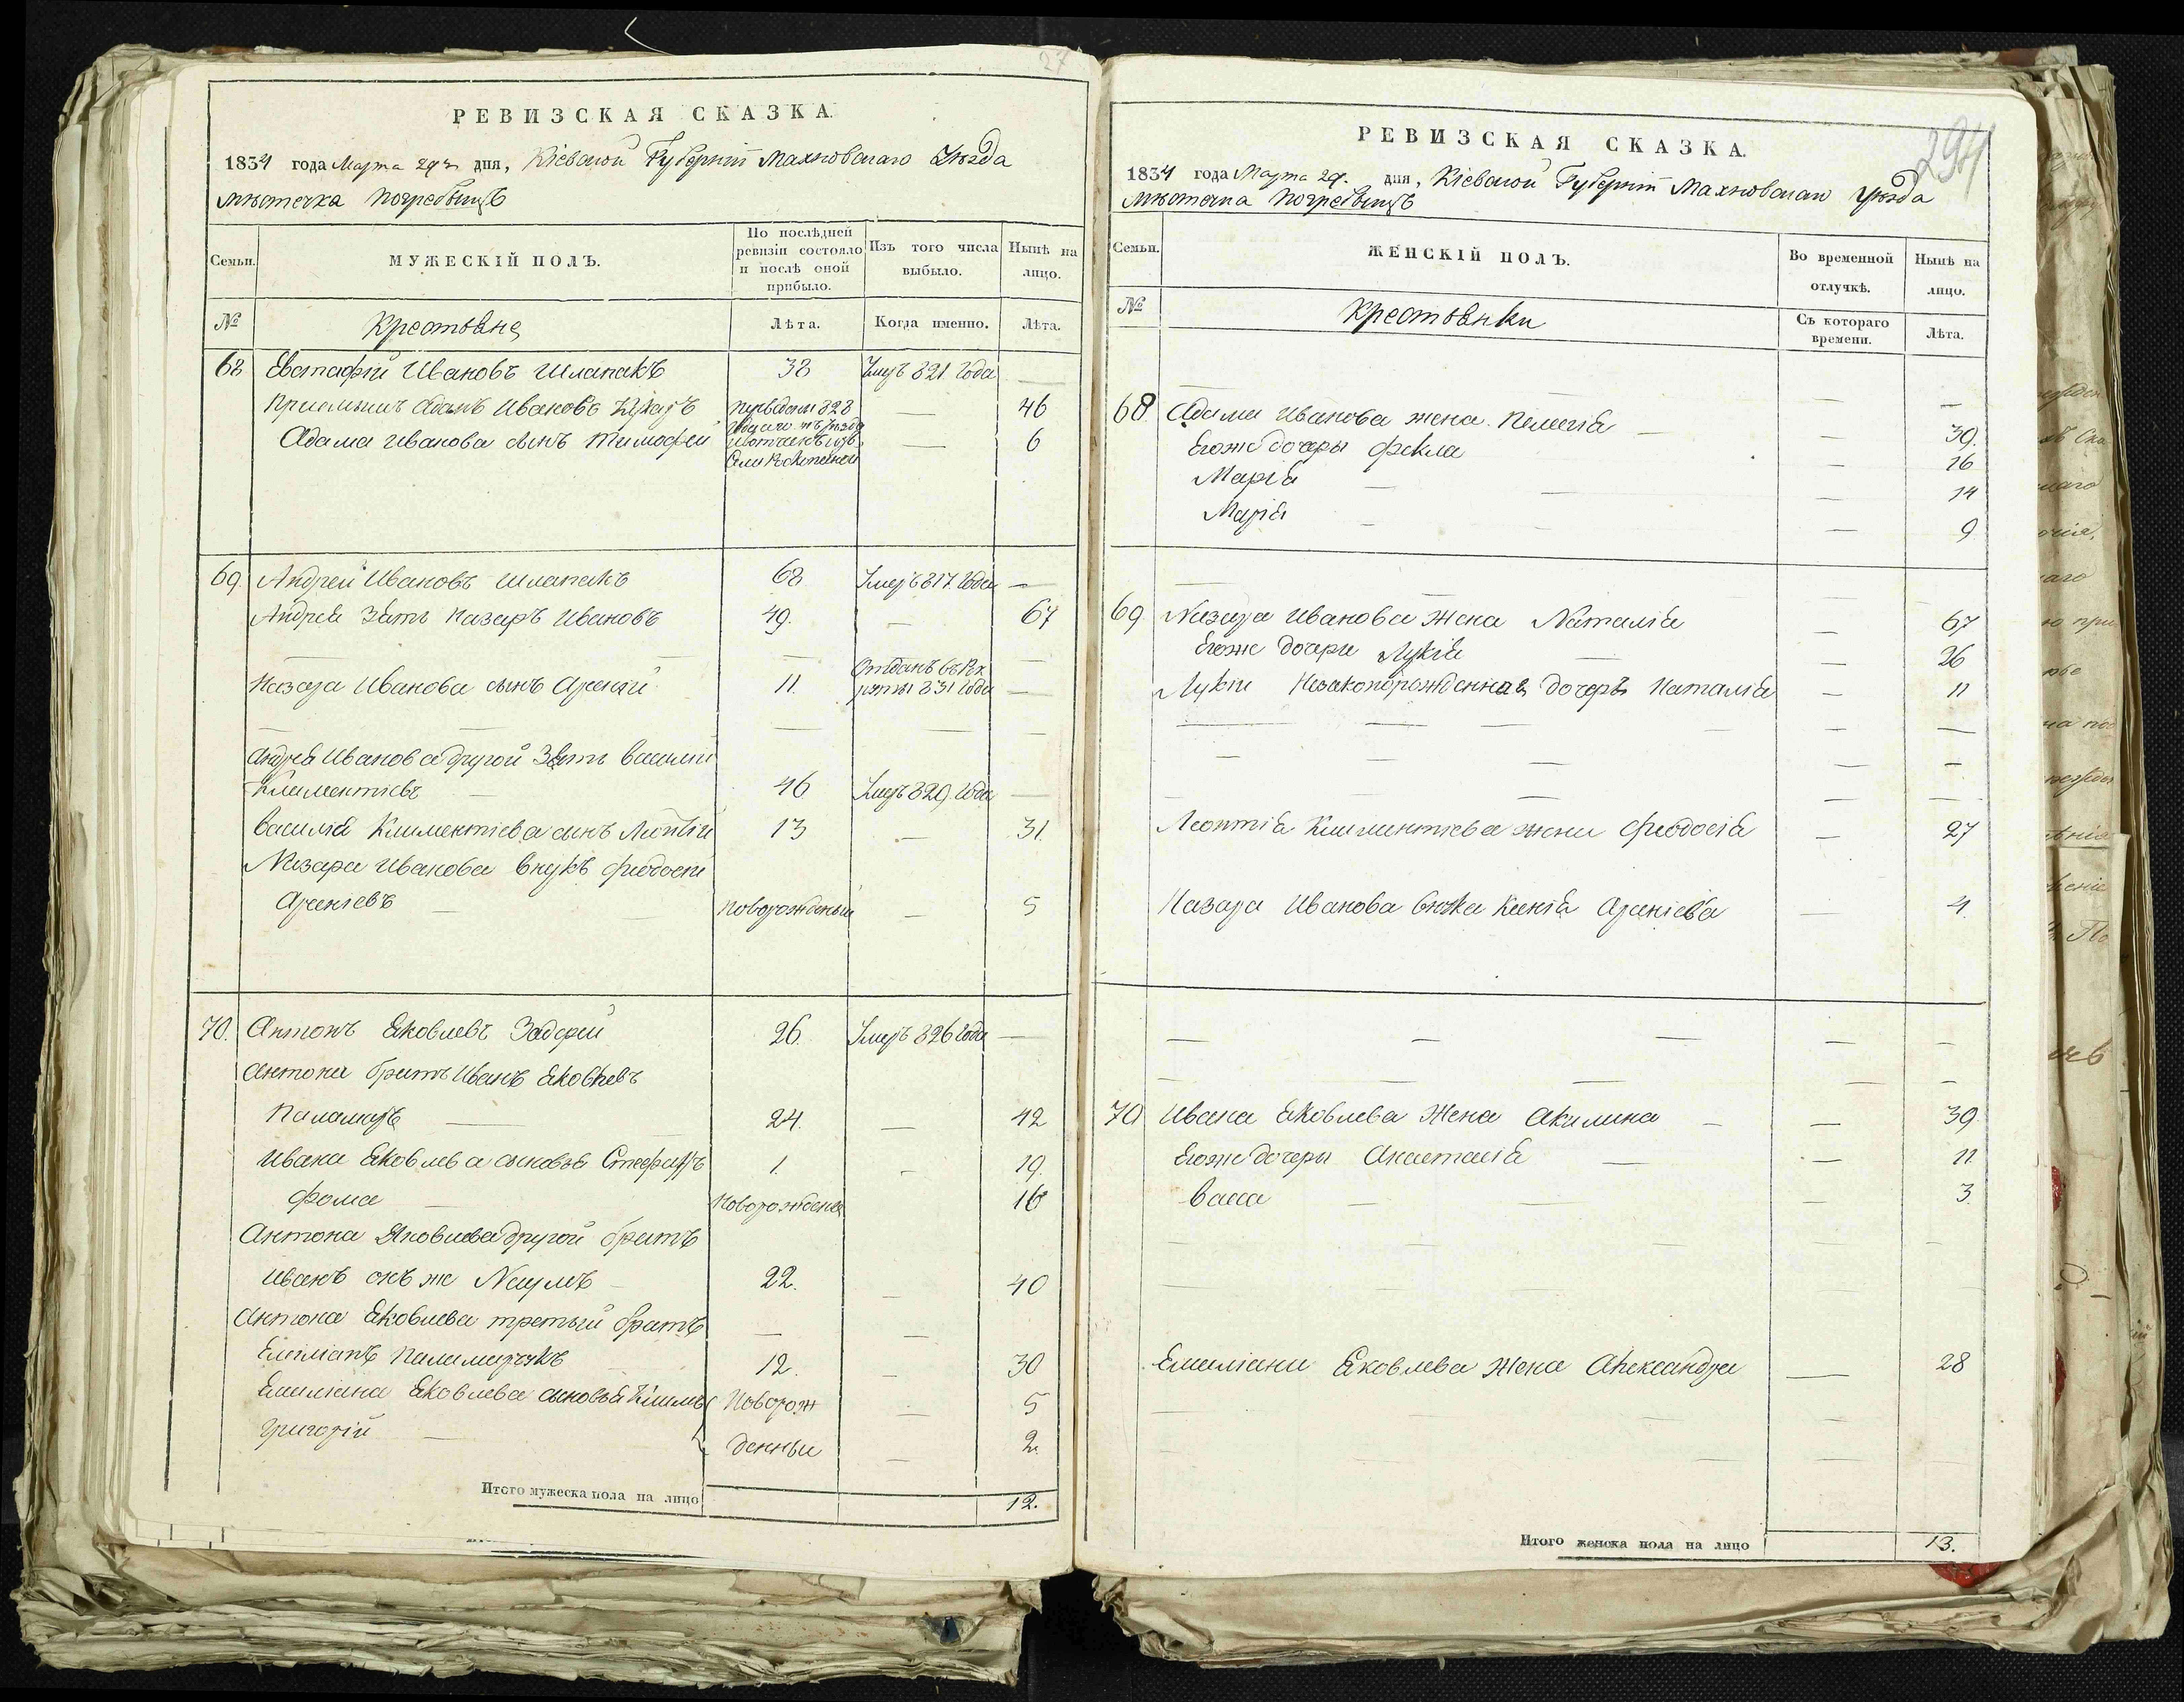 27
РЕВИЗСКАЯ СКАЗКА.
1834 года Марта 29го дня, Кіевской Губерніи Махновскаго Уѣзда
мѣстечка Погребищъ
Семьи.
МУЖЕСКІЙ ПОЛЪ.
По послѣдней ревизіи состояло и послѣ оной прибыло.
Изъ того числа выбыло.
Нынѣ на лицо.
№
Крестьяне
Лѣта.
Когда именно.
Лѣта.
68 Евстафій Ивановъ Шлапакъ 38 Умеръ 821 Года —
Приемышъ Адамъ Ивановъ переведены 828 — 46
Адама Иванова сынъ Тимофей — 6
69. Андрей Ивановъ Шлапакъ 68 Умеръ 817 Года —
Андрея Зять Назаръ Ивановъ 49. — 67
— — Отданъ въ Рек —
Назара Иванова сынъ Арсеній 11. руты 831 Года —
— — — —
Андрея Иванова другой Зять Василій
Климентіевъ — 46 Умеръ 829. Года —
Василія Климентіева сынъ Леонтій 13 — 31.
Назара Иванова внукъ Феодосій
Арсеніевъ — Новорожденый — 5
70. Антонъ Яковлевъ Задерій 26. Умеръ 826 Года —
Антона братъ Иванъ Яковлевъ
Паламаръ — 24. — 42
Ивана Яковлева сыновья 1. - 19.
Фома — Новорожденъ 16
Антона Яковлева другой братъ
Иванъ онъ же Наумъ — 22. — 40
Антона Яковлева третьий братъ — —
Емиліанъ Паламарчукъ 12. — 30
Емиліана Яковлева сыновья Новорож — 5
Григорій — денныи — 2.
Итого мужеска пола на лицо 12.
294
РЕВИЗСКАЯ СКАЗКА.
1834 года Марта 29. дня, Кіевской Губерніи Махновскаго Уѣзда
мѣстечка Погребищъ
Семьи.
ЖЕНСКІЙ ПОЛЪ.
Во временной отлучкѣ.
Нынѣ на лицо.
№
Крестьянки
Съ котораго времени.
Лѣта.
— — —
68 Адама Иванова жена Пелагія — — 39.
Егожъ дочеры Фекла — 16
Марія — — — 14
Марія — — — 9
— — —
69 Назара Иванова жена Наталія — 67
Егоже дочери Лукія — — 26
Лукіи Незаконорожденная дочеръ Наталія — 11
— — — — —
— — — — —
— — — —
Леонтія Климентіева жена Феодосія — 27
Назара Иванова внука Ксенія Арсеніева — 4.
— — — — —
— — — — —
70 Ивана Яковлева Жена Акилина — — 39.
Егожъ дочеры Анастасія — — 11.
Васса — — — 3.
— — — — —
— — — — —
Емиліана Яковлева Жена Александра — 28
— — — —
— — — —
Итого женска пола на лицо 13.